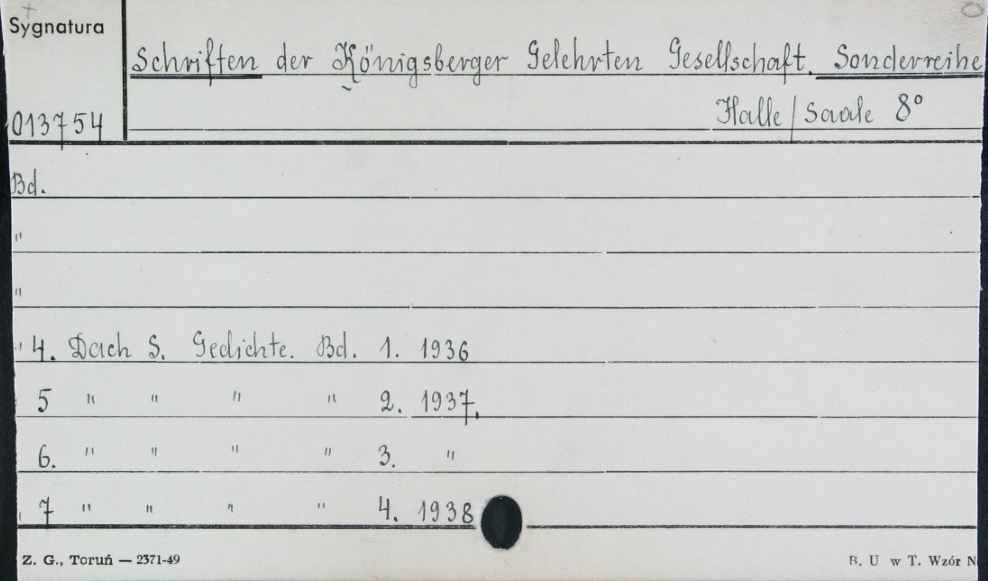 Sygnatura
Schriften der Königsberger Gelehrten Gesellschaft. Sonderreihe
013754 Halle/Saale 8°
Bd.
"
"
" 4. Dach S. Gedichte. Bd. 1. 1936
5 " " " " 2. 1937.
6. " " " " 3. "
7 " " " " 4. 1938
Z. G., Toruń — 2371-49 B. U w T. Wzór N